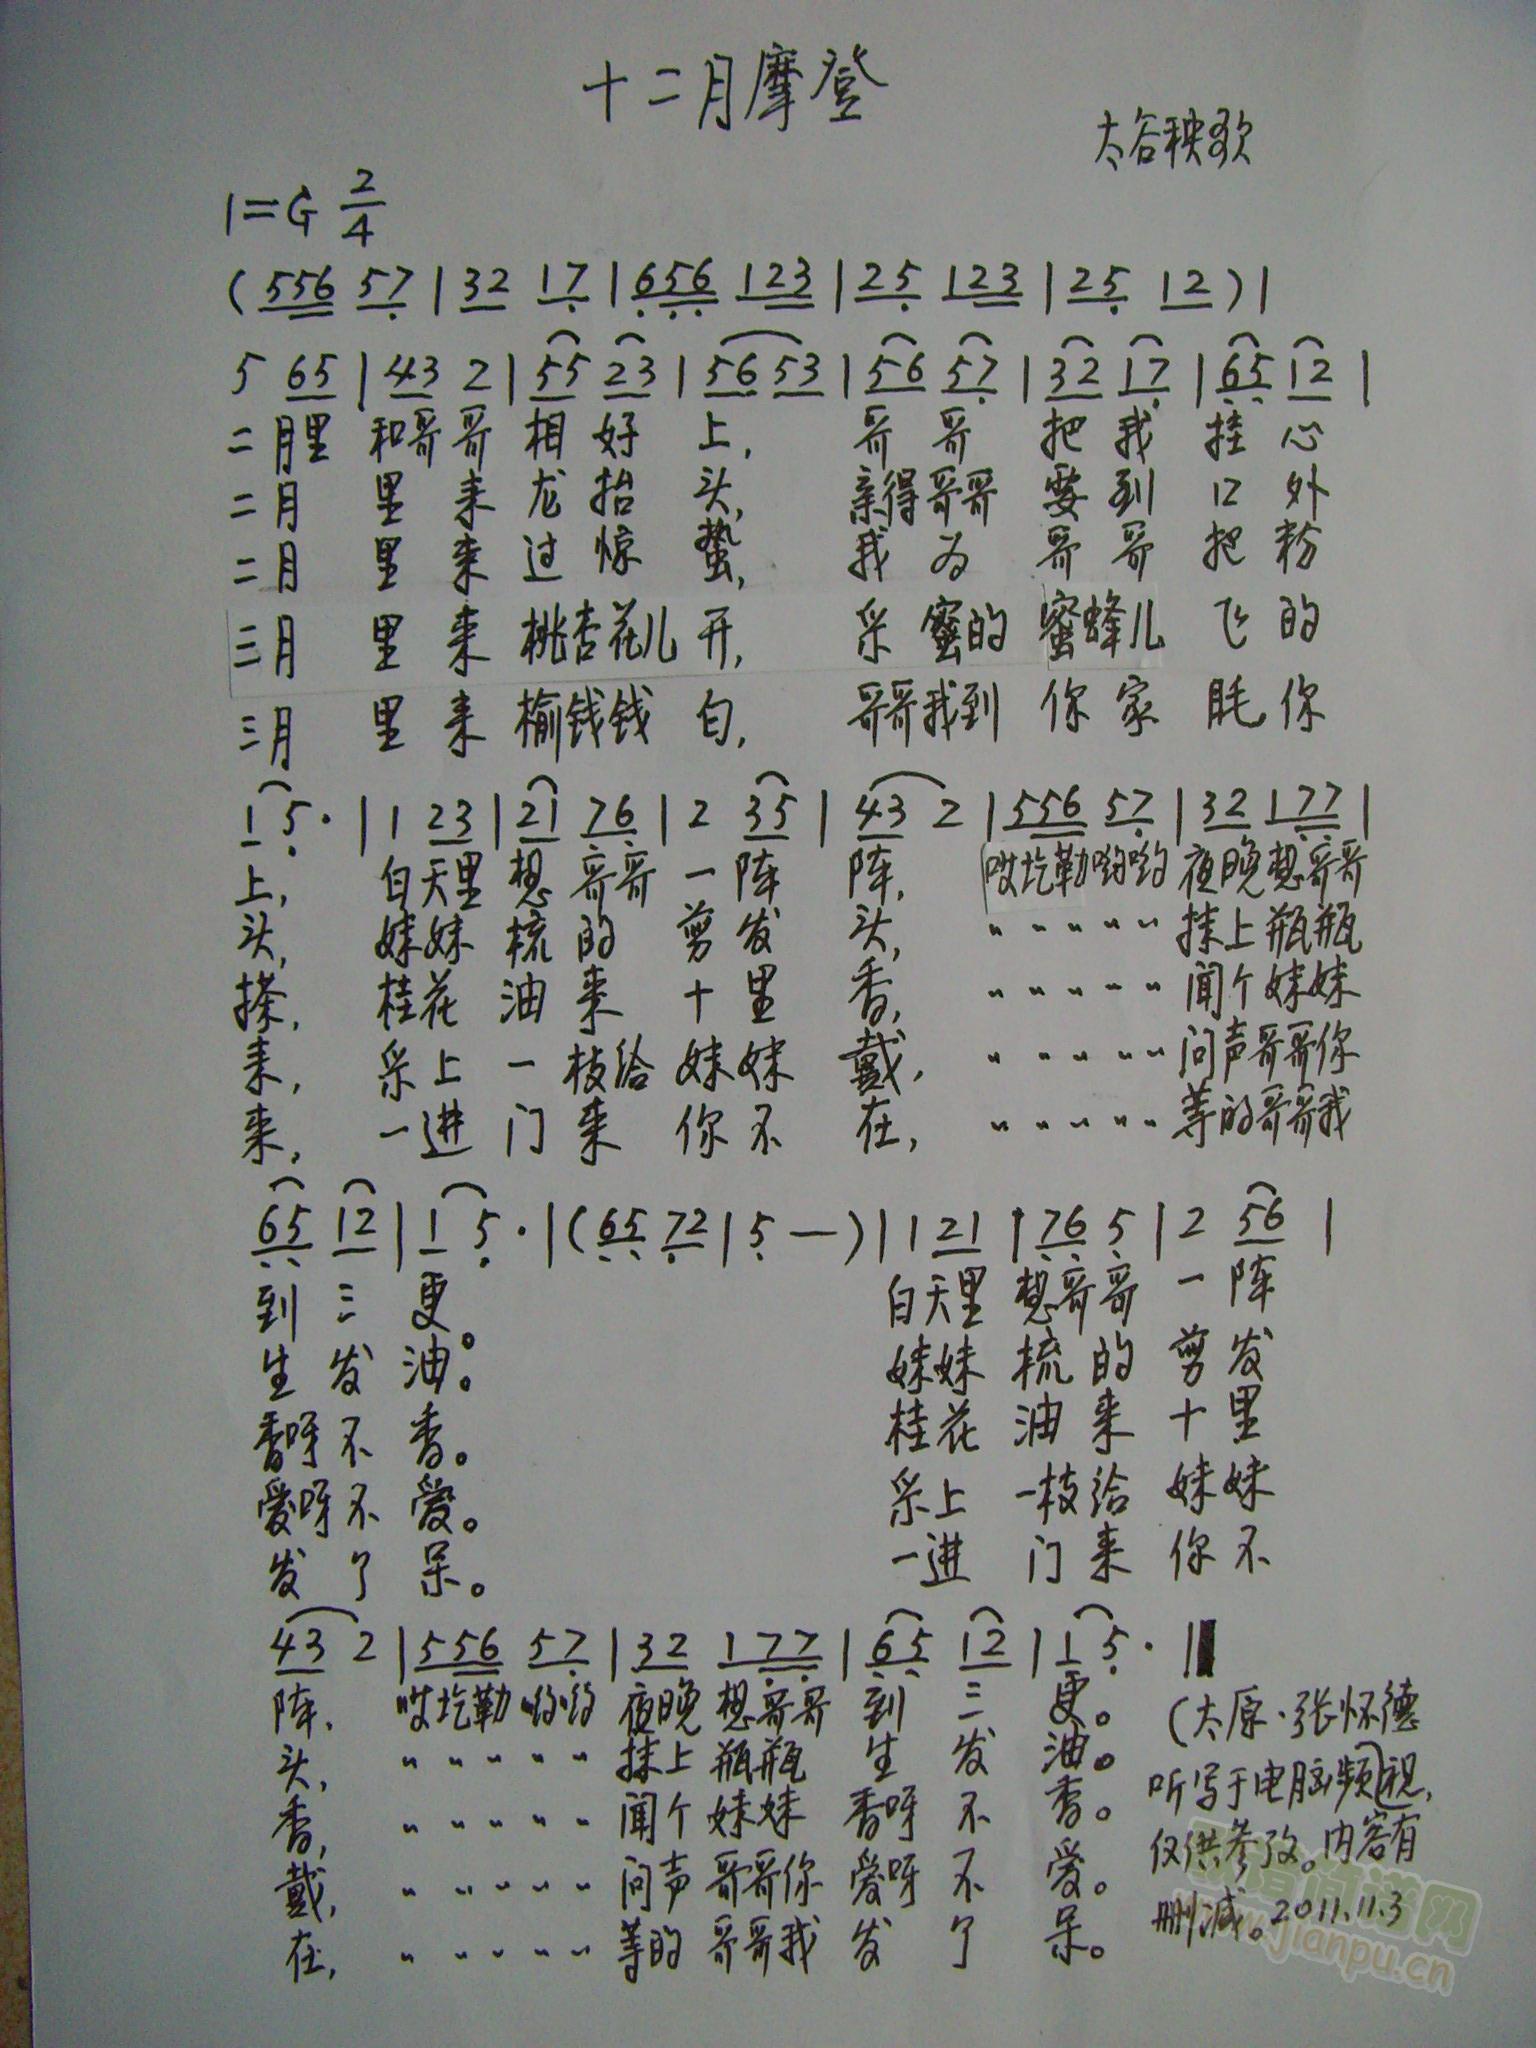 十二月摩登
太谷秧歌
1=G 2/4
(556 57|32 17|656 123|25 123|25 12)|
5 65|43 2|55 23|56 53|56 57|32 17|65 12|
二月里 和哥哥 相好 上, 哥哥 把我 挂心
二月 里来 龙抬 头, 亲得哥哥 要到 口外
二月 里来 过惊 蛰, 我为 哥哥 把粉
三月 里来 桃杏花儿 开, 采蜜的 蜜蜂儿 飞的
三月 里来 榆钱钱 白, 哥哥我到 你家 眊你
1 5·|1 23|21 76|2 35|43 2|556 57|32 177|
上, 白天里 想哥哥 一阵 阵, 哎圪勒哟哟 夜晚想哥哥
头, 妹妹 梳的 剪发 头, " " " " " 抹上瓶瓶
搽, 桂花 油来 十里 香, " " " " " 闻个妹妹
来, 采上 一枝给 妹妹 戴, " " " " " 问声哥哥你
来, 一进 门来 你不 在, " " " " " 等的哥哥我
65 12|1 5·|(65 72|5 —)|1 21|76 5|2 56|
到三 更。 白天里 想哥哥 一阵
生发 油。 妹妹 梳的 剪发
香呀不 香。 桂花 油来 十里
爱呀不 爱。 采上 一枝给 妹妹
发了 呆。 一进 门来 你不
43 2|556 57|32 177|65 12|1 5·||
阵, 哎圪勒 哟哟 夜晚 想哥哥 到三 更。
头, " " " " " 抹上 瓶瓶 生发 油。
香, " " " " " 闻个 妹妹 香呀不 香。
戴, " " " " " 问声 哥哥你 爱呀不 爱。
在, " " " " " 等的 哥哥我 发了 呆。
(太原·张怀德
听写于电脑频视,
仅供参考。内容有
删减。2011.11.3
www.jianpu.cn